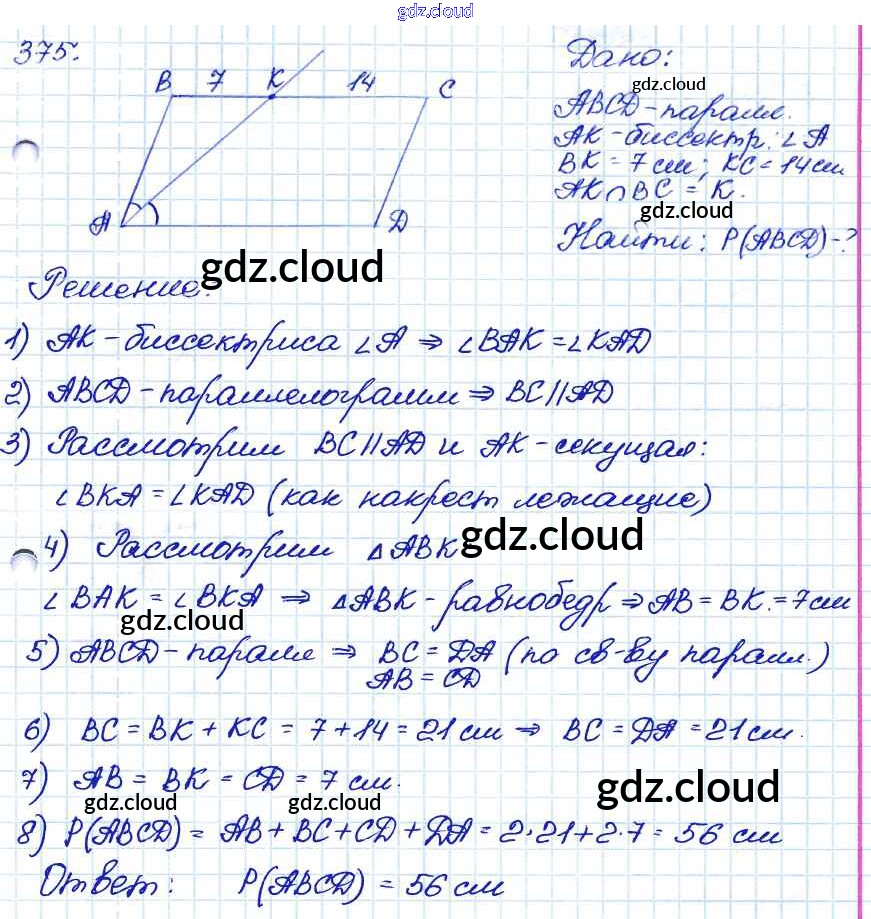 gdz.cloud
375.
B 7 K 14 C
A D
Дано:
gdz.cloud
ABCD - паралл.
AK - биссектр. ∠A
BK = 7 см; KC = 14 см
AK ∩ BC = K.
gdz.cloud
Найти: P(ABCD) - ?
gdz.cloud
Решение:
1) AK - биссектриса ∠A ⇒ ∠BAK = ∠KAD
2) ABCD - параллелограмм ⇒ BC || AD
3) Рассмотрим BC || AD и AK - секущая:
∠BKA = ∠KAD (как накрест лежащие)
4) Рассмотрим △ABK gdz.cloud
∠BAK = ∠BKA ⇒ △ABK - равнобедр ⇒ AB = BK = 7 см
gdz.cloud
5) ABCD - паралл ⇒ BC = DA (по св-ву паралл.)
AB = CD
6) BC = BK + KC = 7 + 14 = 21 см ⇒ BC = DA = 21 см.
7) AB = BK = CD = 7 см.
gdz.cloud gdz.cloud gdz.cloud
8) P(ABCD) = AB + BC + CD + DA = 2·21 + 2·7 = 56 см
Ответ: P(ABCD) = 56 см